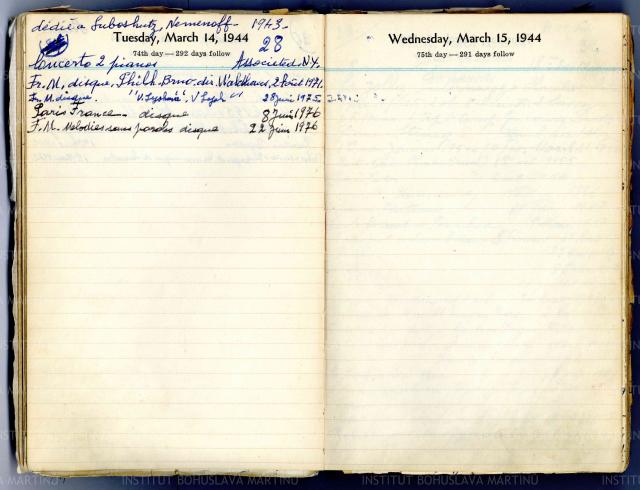 dédié à Luboshutz, Nemenoff - 1943 -
Tuesday, March 14, 1944
28
74th day — 292 days follow
Concerto 2 pianos Associated N.Y.
Fr. M. disque, Philh. Brno, dir. Waldhans, 2 Août 1971.
Fr. M. disque. " " V. Lejsková, V. Lejsek " " 28 juin 1975
Paris France - disque 8 Juin 1976
F. M. Melodies sans paroles disque 22 juin 1976
Wednesday, March 15, 1944
75th day — 291 days follow
INSTITUT BOHUSLAVA MARTINŮ